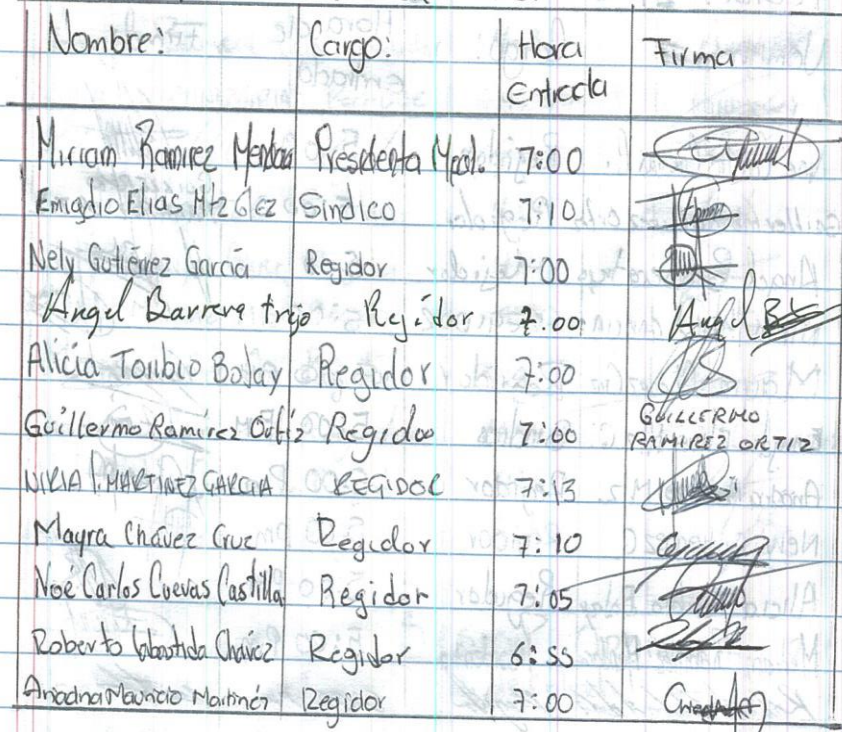 Nombre: Cargo: Hora Entrada Firma
Miriam Ramirez Mendoza Presidenta Mpal. 7:00
Emigdio Elias Mtz Glez Sindico 7:10
Nely Gutiérrez García Regidor 7:00
Angel Barrera trejo Regidor 7:00 Angel
Alicia Toribio Regidor 7:00
Guillermo Ramírez Ortiz Regidor 7:00 GUILLERMO RAMIREZ ORTIZ
MARTINEZ GARCIA REGIDOR 7:13
Mayra Chávez Cruz Regidor 7:10
Noé Carlos Cuevas Castilla Regidor 7:05
Roberto Labastida Chávez Regidor 6:55
Ariadna Mauricio Martínez Regidor 7:00